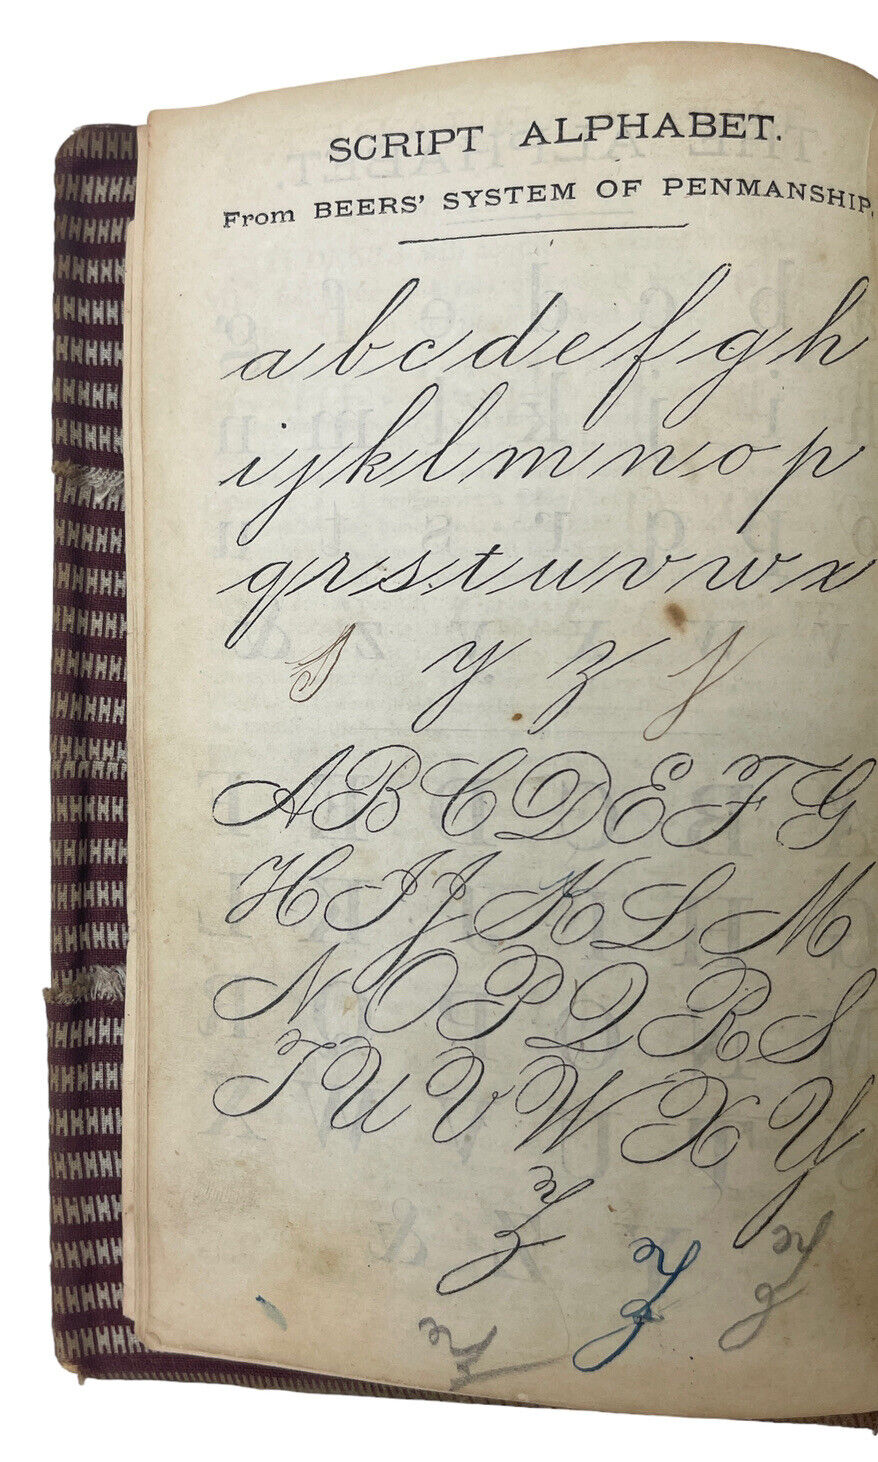 SCRIPT ALPHABET.
From BEERS' SYSTEM OF PENMANSHIP.
a b c d e f g h
i j k l m n o p
q r s t u v w x
y z
A B C D E F G
H I J K L M
N O P Q R S
T U V W X Y
Z